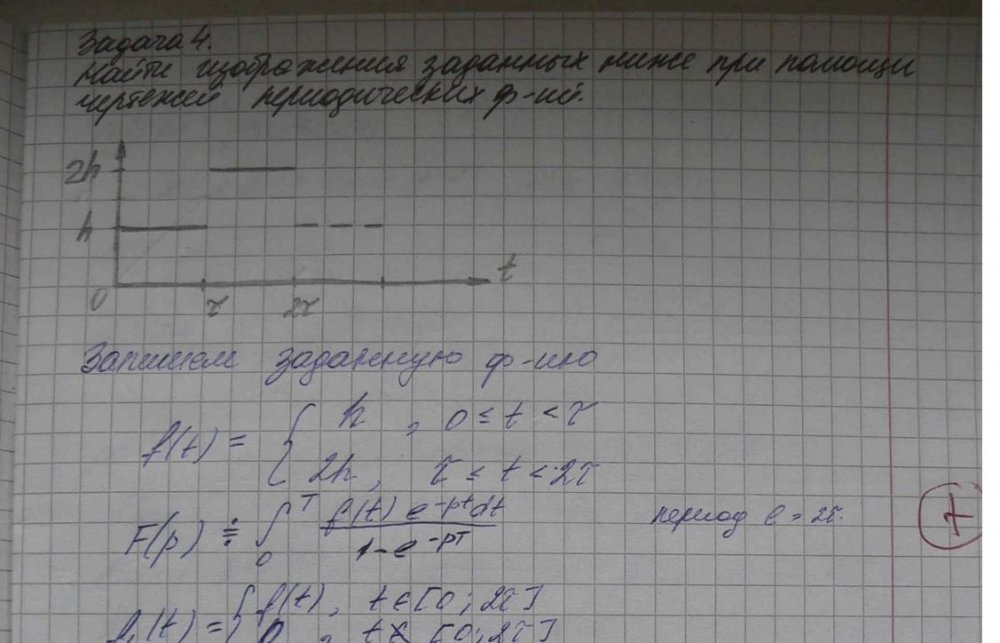 Задача 4.
Найти изображения заданных ниже при помощи
чертежей периодических ф-ий.
2h
h
0 τ 2τ t
Запишем заданную ф-ию
f(t) = { h , 0 ≤ t < τ
2h, τ ≤ t < 2τ
F(p) ≑ ∫₀ᵀ f(t) e^{-pt} dt / 1 - e^{-pT} период ℓ = 2τ.
f₁(t) = { f(t), t ∈ [0; 2τ]
0 , t ∉ [0; 2τ]